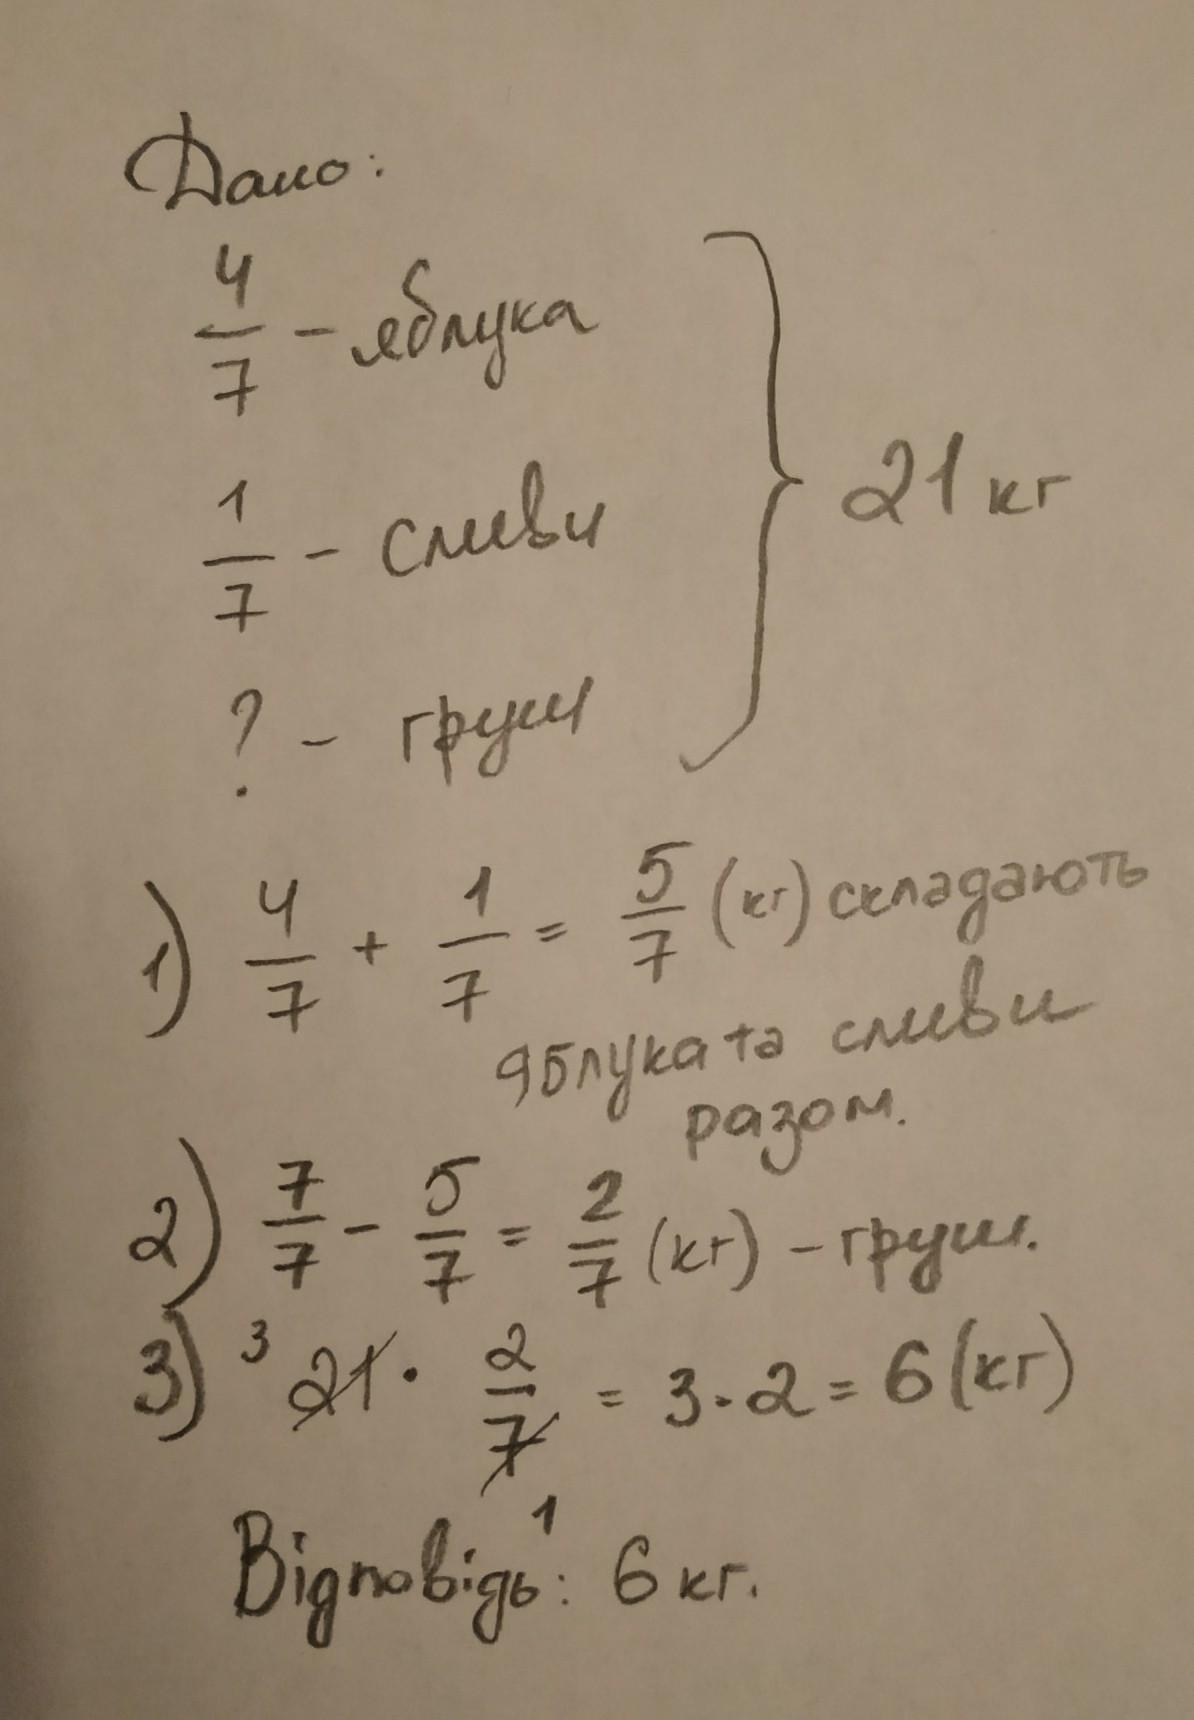 Дано:
4/7 - яблука
1/7 - сливи
21 кг
? - груші
1) 4/7 + 1/7 = 5/7 (кг) складають
яблука та сливи
разом.
2) 7/7 - 5/7 = 2/7 (кг) - груш.
3) 3 21 · 2/7 = 3 · 2 = 6 (кг)
1
Відповідь: 6 кг.